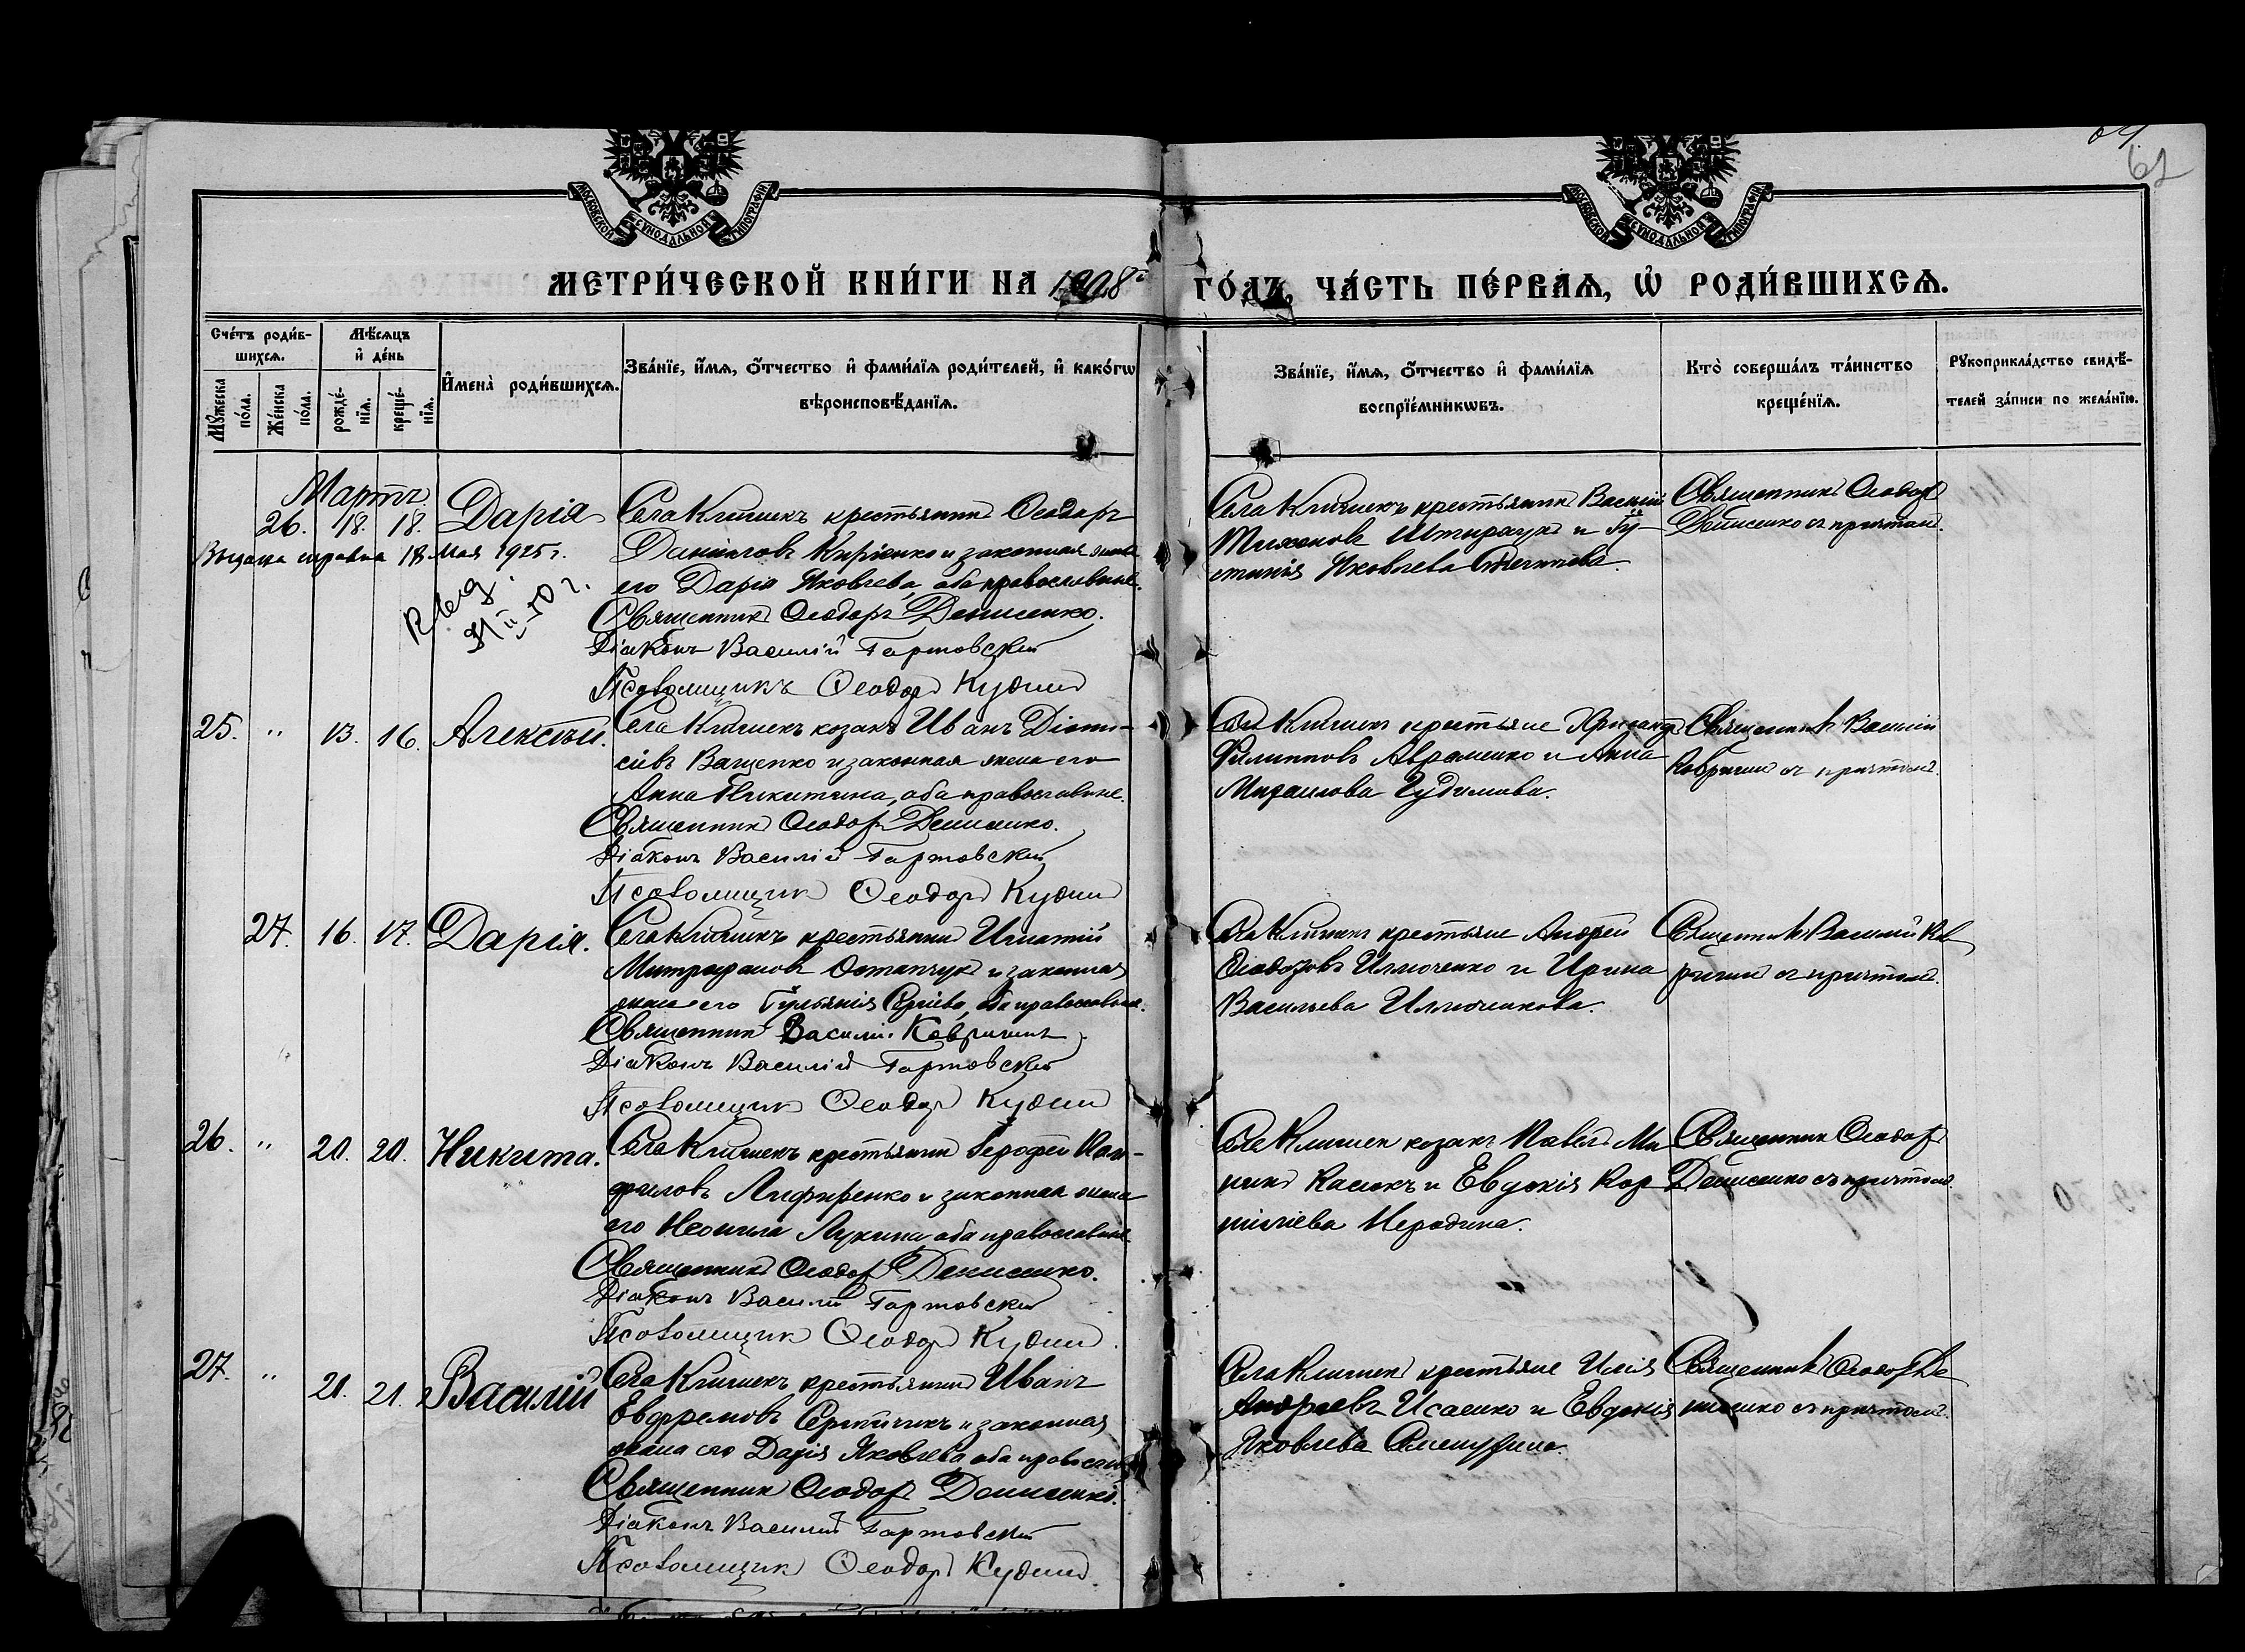 61
МОСКОВСКОЙ СѴНОДАЛЬНОЙ ТИПОГРАФІИ
МОСКОВСКОЙ СѴНОДАЛЬНОЙ ТИПОГРАФІИ
МЕТРИ́ЧЕСКОЙ КНИ́ГИ НА 1908й ГО́ДЪ, ЧА́СТЬ ПЕ́РВАЯ, Ѡ РОДИ́ВШИХСЯ.
Сче́тъ роди́в-
шихся.
Мѣ́сяцъ
и҆ де́нь
Мꙋжеска по́ла.
Же́нска по́ла.
рожде́-
нїя.
креще́-
нїя.
И҆мена̀ роди́вшихся.
Зва́нїе, и҆́мя, ѻ҆́тчество и҆ фами́лїя роди́телей, и҆ како́гѡ
вѣроисповѣ́данїя.
Зва́нїе, и҆́мя, ѻ҆́тчество и҆ фами́лїя
воспрїе́мникѡвъ.
Кто̀ соверша́лъ та́инство
креще́нїя.
Рꙋкоприкла́дство свидѣ́-
телей за́писи по жела́нїю.
Мартъ
26. 18. 18. Дарія
Села Клишекъ крестьянинъ Ѳеодоръ
Данииловъ Кириенко и законная жена
его Дарія Яковлева, оба православные.
Священникъ Ѳеодоръ Денисенко.
Діаконъ Василій Гартовскій
Псаломщикъ Ѳеодоръ Кудинъ
Выдана справка 18 Мая 1925 г.
Села Клишекъ крестьянинъ Василій
Тихоновъ и Гу-
стинія Яковлева
Священникъ Ѳеодоръ
Денисенко съ причтомъ.
25. " 13. 16. Алексѣй.
Села Клишекъ козакъ Иванъ Діони-
сіевъ Ващенко и законная жена его
Анна Никитина, оба православные.
Священникъ Ѳеодоръ Денисенко.
Діаконъ Василій Гартовскій
Псаломщикъ Ѳеодоръ Кудинъ
Села Клишекъ крестьяне Хрисанфъ
Филипповъ Авраменко и Анна
Михаилова Гудимова.
Священникъ Василій
Ковригинъ съ причтомъ.
27. 16. 17. Дарія.
Села Клишекъ крестьянинъ Игнатій
Митрофановъ Остапчукъ и законная
жена его Гульянія Сергіева, оба православные.
Священникъ Василій Ковригинъ.
Діаконъ Василій Гартовскій
Псаломщикъ Ѳеодоръ Кудинъ
Села Клишекъ крестьяне Андрей
Ѳеодоровъ Илюченко и Ирина
Васильева Илюченкова.
Священникъ Василій Ков
ригинъ съ причтомъ.
26. " 20. 20. Никита.
Села Клишекъ крестьянинъ Іерофей Пам-
филовъ и законная жена
его Неонила Лукина, оба православные.
Священникъ Ѳеодоръ Денисенко.
Діаконъ Василій Гартовскій
Псаломщикъ Ѳеодоръ Кудинъ
Села Клишекъ козакъ Павелъ Ми
нинъ Касюкъ и Евдокія Кор
ниліева
Священникъ Ѳеодоръ
Денисенко съ причтомъ.
27. " 21. 21. Василій
Села Клишекъ крестьянинъ Иванъ
Евфремовъ и законная
жена его Дарія Яковлева оба православн
Священникъ Ѳеодоръ Денисенко.
Діаконъ Василій Гартовскій
Псаломщикъ Ѳеодоръ Кудинъ.
Села Клишекъ крестьяне Илія
Андреевъ Исаенко и Евдокія
Яковлева
Священникъ Ѳеодоръ Де
нисенко съ причтомъ.